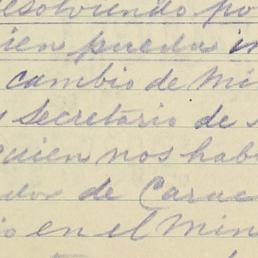 resolviendo po
ien pueda in
cambio de Min
secretario de s
quien nos hab
ados de Carac
io en el Min